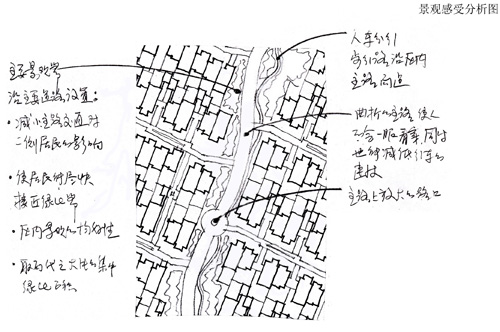 景观感受分析图
主要景观带
沿主要道路设置:
·减小主路交通对
二侧居民的影响
·使居民能尽快
接近绿化带
·区内景观的均好性
·取而代之大片的集中
绿化面积
人车分行
步行路沿区内
主路同边
曲折的主路使人
不会一眼看穿,同时
也能减低行车的
速度
主路上放大的路口